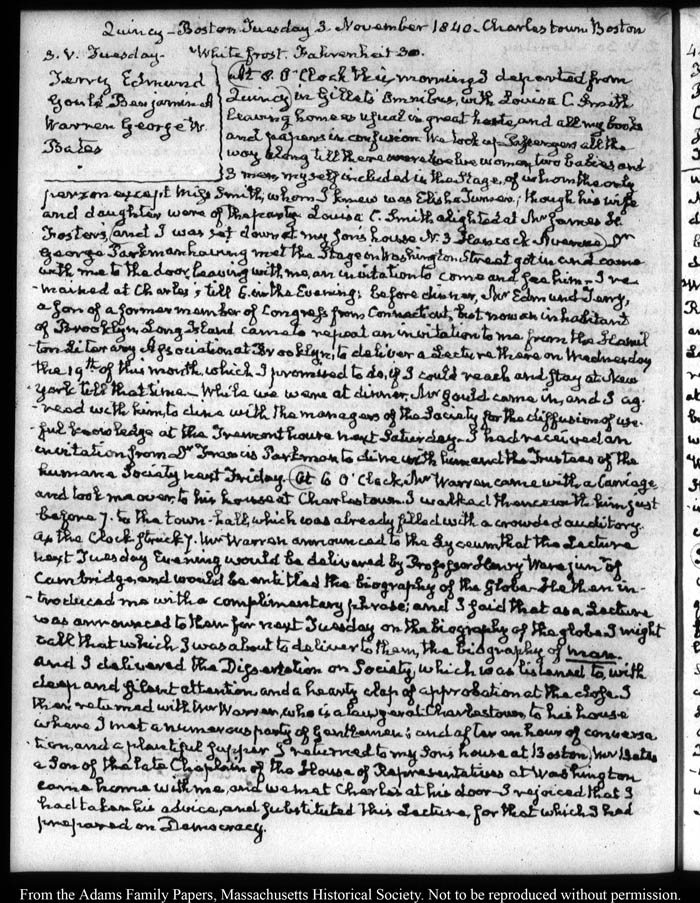 Quincy – Boston Tuesday 3. November 1840. Charlestown Boston
3. V. Tuesday. White frost. Fahrenheit 30.
Terry Edmund
Gould Benjamin A
Warren George W.
Bates
At 8. O'Clock this morning I departed from
Quincy in Gillet's Omnibus, with Louisa C. Smith
leaving home as usual in great haste and all my books
and papers in confusion. We took up Passengers all the
way along till there were twelve women, two babies and
3 men, myself included in the Stage, of whom the only
person except Miss Smith, whom I knew was Elisha Turner; though his wife
and daughter were of the party. Louisa C. Smith alighted at Mr James H.
Foster's, and I was set down at my Son's house N. 3 Hancock Avenue; Dr
George Parkman having met the Stage on Washington Street got in and came
with me to the door, leaving with me, an invitation to come and see him – I re-
-mained at Charles's till 6. in the Evening; before dinner, Mr Edmund Terry,
a Son of a former member of Congress from Connecticut, but now an inhabitant
of Brooklyn, Long Island came to repeat an invitation to me from the Hamil
ton Literary Association at Brooklyn, to deliver a Lecture there on Wednesday
the 19th of this month, which I promised to do, if I could reach and stay at New
-York till that time – While we were at dinner, Mr Gould came in, and I ag-
-reed with him, to dine with the managers of the Society for the diffusion of use-
-ful knowledge at the Tremont house next Saturday. I had received an
invitation from Dr Francis Parkman to dine with him and the Trustees of the
humane Society next Friday. At 6 O'Clock, Mr Warren came with a Carriage
and took me over, to his house at Charlestown. I walked thence with him just
before 7. to the town-hall, which was already filled with a crowded auditory.
As the Clock struck 7. Mr Warren announced to the Lyceum that the Lecture
next Tuesday Evening would be delivered by Professor Henry Ware junr of
Cambridge, and would be entitled the biography of the Globe. He then in-
-troduced me with a complimentary phrase; and I said that as a Lecture
was announced to them for next Tuesday on the biography of the globe I might
call that which I was about to deliver to them, the biography of man.
And I delivered the Dissertation on Society, which was listened to, with
deep and silent attention and a hearty clap of approbation at the close. I
then returned with Mr Warren, who is a lawyer at Charlestown, to his house
where I met a numerous party of Gentlemen; and after an hour of conversa
tion, and a plentiful supper I returned to my Son's house at Boston, Mr Bates
a Son of the late Chaplain of the House of Representatives at Washington
came home with me, and we met Charles at his door – I rejoiced that I
had taken his advice, and substituted this Lecture, for that which I had
prepared on Democracy.
From the Adams Family Papers, Massachusetts Historical Society. Not to be reproduced without permission.